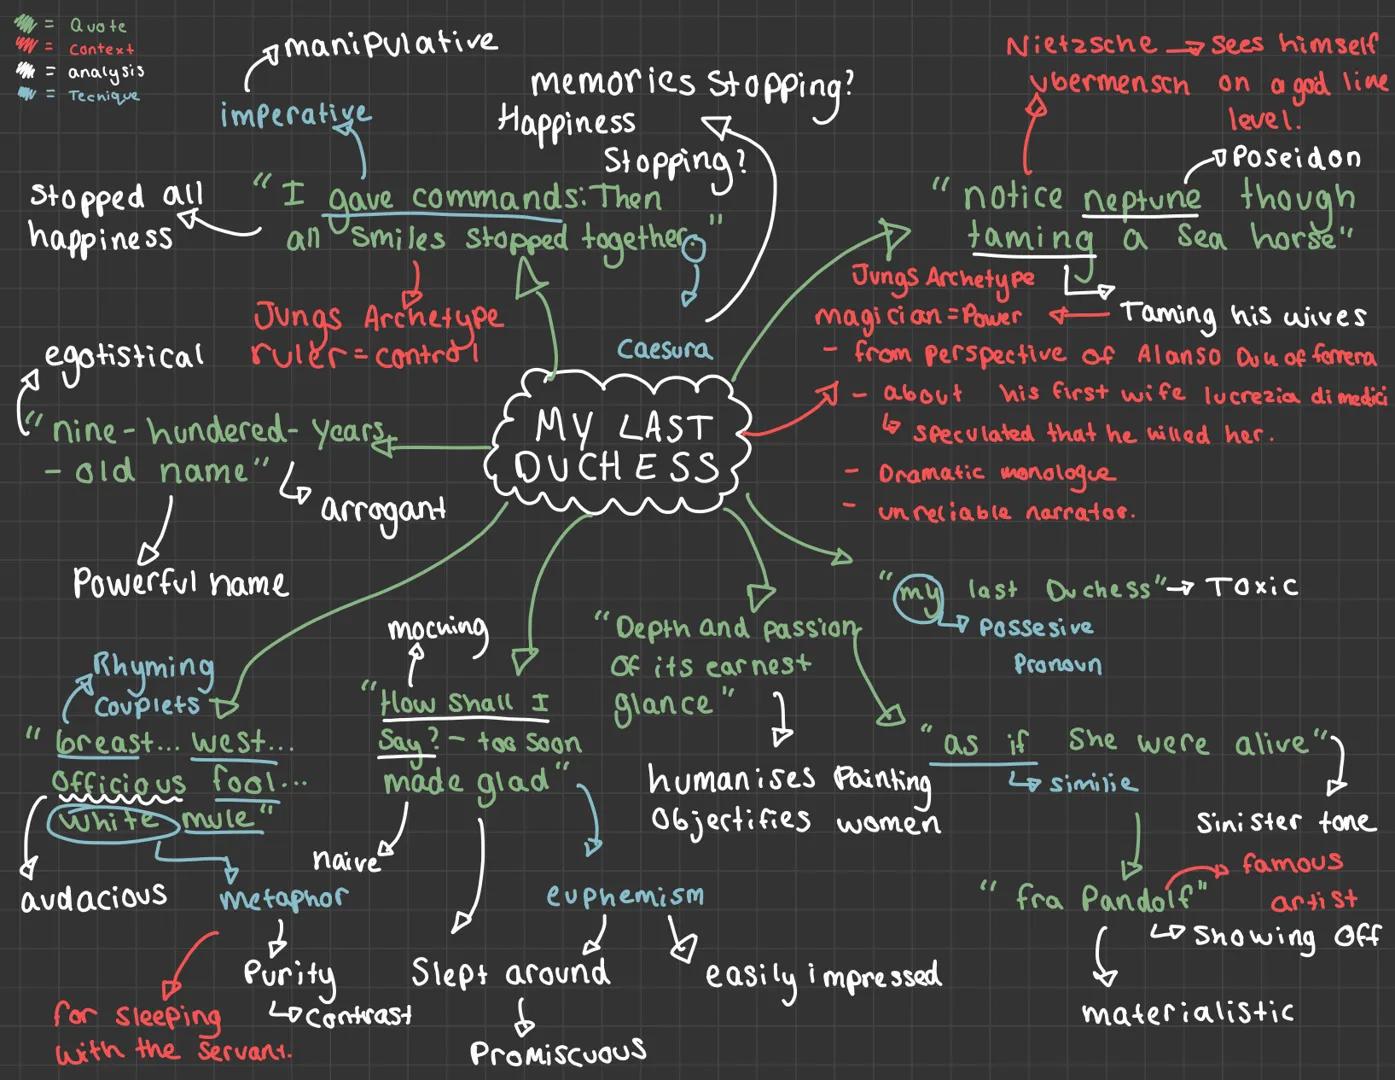 = Quote
= Context
= analysis
= Tecnique
manipulative
imperative
memories Stopping?
Happiness
Stopping?
Nietzsche → Sees himself
ubermensch on a god line
level.
Poseidon
Stopped all
happiness
"I gave commands: Then
all smiles stopped together."
"notice neptune though
taming a sea horse"
Jungs Archetype
ruler = control
caesura
Jungs Archetype
magician = Power
Taming his wives
- from perspective of Alanso Duu of ferrera
- about his first wife lucrezia di medici
speculated that he killed her.
- Dramatic monologue
- unreliable narrator.
egotistical
"nine-hundered-years
- old name"
arrogant
Powerful name
MY LAST
DUCHESS
"my last Duchess" → Toxic
possesive
Pronoun
Rhyming
couplets
"breast... west...
officious fool...
white mule"
audacious
metaphor
for sleeping
with the servant.
Purity
contrast
mocking
"How shall I
say? - too soon
made glad"
naive
euphemism
Slept around
Promiscuous
easily impressed
"Depth and passion
Of its earnest
glance"
humanises Painting
Objectifies women
"as if she were alive"
similie
Sinister tone
"fra Pandolf"
famous
artist
Showing Off
materialistic